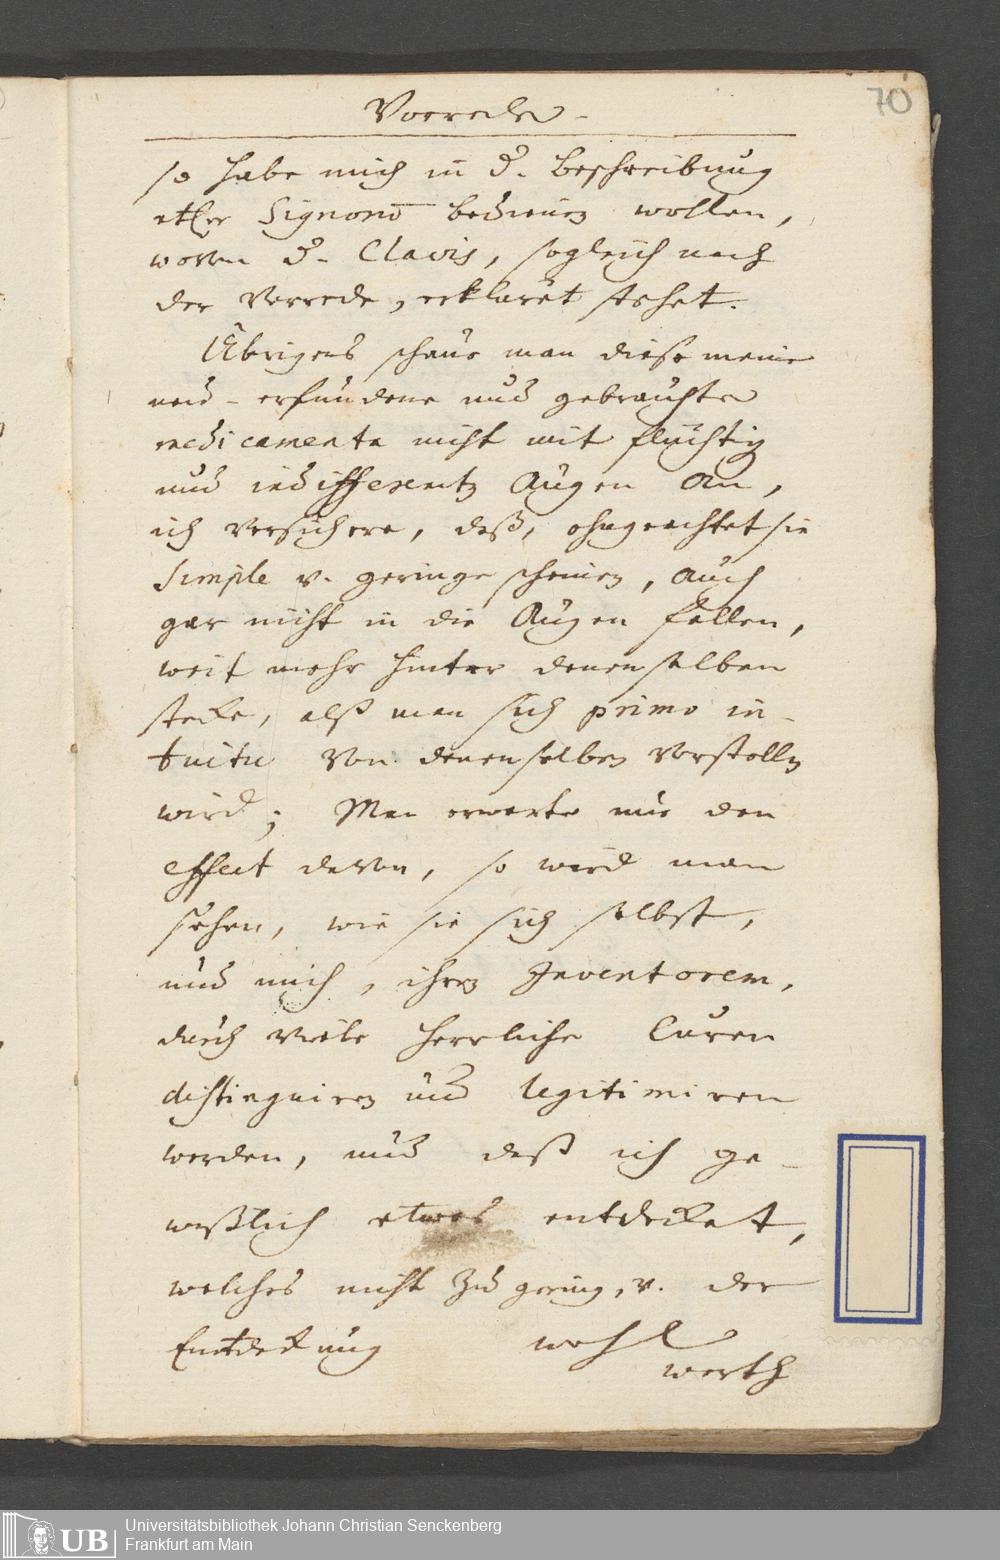 Vorrede
70
so habe mich in d. beschreibung
etler Signorū bedienen wollen,
wovon d. Clavis, sogleich nach
der Vorrede, erkläret stehet.
Übrigens schaue man diese meine
neu-erfundene und gebrauchte
medicamenta nicht mit flüchtig
und indifferenten Augen an,
ich versichere, daß, ohngeachtet sie
Simple u. geringe scheinen, auch
gar nicht in die Augen fallen,
weit mehr hinter denenselben
stecke, alß man sich primo in-
tuitu von denenselben vorstellen
wird; Man erwarte nur den
effect davon, so wird man
sehen, wie sie sich selbst,
und mich, ihren Inventorem,
durch viele herrliche Curen
distinguiren und legitimiren
werden, und daß ich ge-
wißlich etwas entdecket,
welches nicht zu gering, u. der
Entdeckung wohl
werth
UB
Universitätsbibliothek Johann Christian Senckenberg
Frankfurt am Main